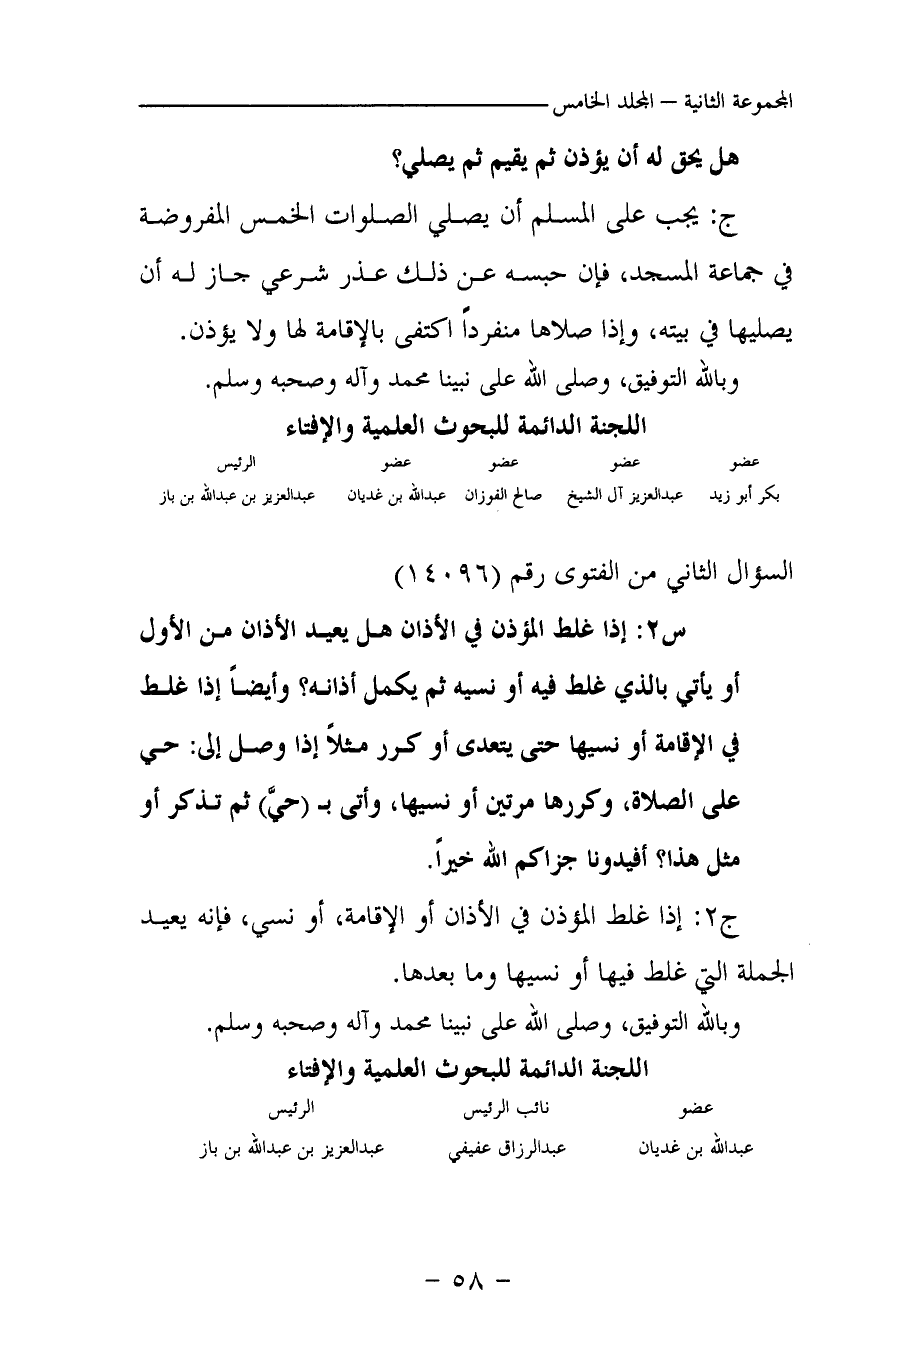 المجموعة الثانية – المجلد الخامس
هل يحق له أن يؤذن ثم يقيم ثم يصلي؟
ج: يجب على المسلم أن يصلي الصلوات الخمس المفروضة
في جماعة المسجد، فإن حبسه عن ذلك عذر شرعي جاز له أن
يصليها في بيته، وإذا صلاها منفرداً اكتفى بالإقامة لها ولا يؤذن.
وبالله التوفيق، وصلى الله على نبينا محمد وآله وصحبه وسلم.
اللجنة الدائمة للبحوث العلمية والإفتاء
عضو عضو عضو عضو الرئيس
بكر أبو زيد عبدالعزيز آل الشيخ صالح الفوزان عبدالله بن غديان عبدالعزيز بن عبدالله بن باز
السؤال الثاني من الفتوى رقم (١٤٠٩٦)
س٢: إذا غلط المؤذن في الأذان هل يعيد الأذان من الأول
أو يأتي بالذي غلط فيه أو نسيه ثم يكمل أذانه؟ وأيضاً إذا غلط
في الإقامة أو نسيها حتى يتعدى أو كرر مثلاً إذا وصل إلى: حي
على الصلاة، وكررها مرتين أو نسيها، وأتى بـ (حيَّ) ثم تذكر أو
مثل هذا؟ أفيدونا جزاكم الله خيراً.
ج٢: إذا غلط المؤذن في الأذان أو الإقامة، أو نسي، فإنه يعيد
الجملة التي غلط فيها أو نسيها وما بعدها.
وبالله التوفيق، وصلى الله على نبينا محمد وآله وصحبه وسلم.
اللجنة الدائمة للبحوث العلمية والإفتاء
عضو نائب الرئيس الرئيس
عبدالله بن غديان عبدالرزاق عفيفي عبدالعزيز بن عبدالله بن باز
– ٥٨ –